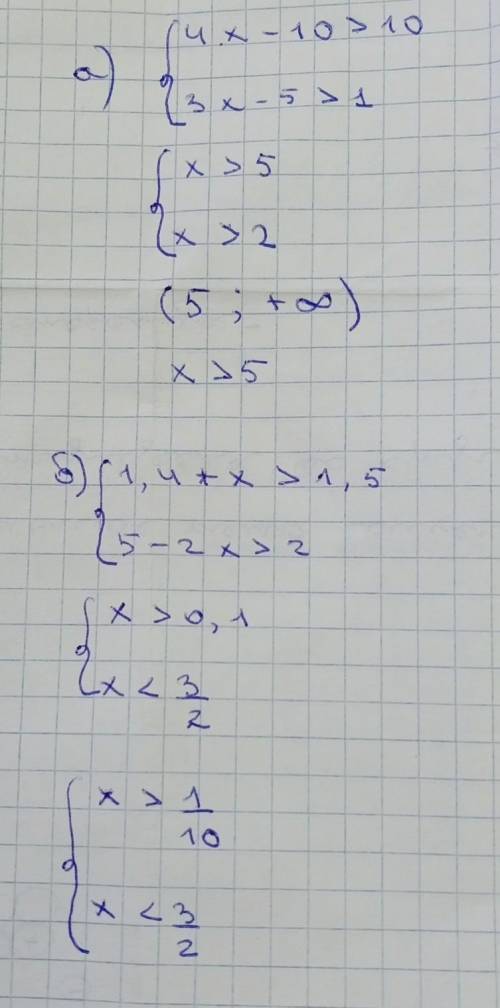 а) { 4x - 10 > 10
3x - 5 > 1
{ x > 5
x > 2
(5 ; +∞)
x > 5
б) { 1,4 + x > 1,5
5 - 2x > 2
{ x > 0,1
x < 3/2
{ x > 1/10
x < 3/2